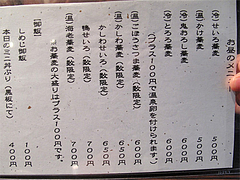 お昼のメニュー
(冷)せいろ蕎麦 500
(温)かけ蕎麦 500
(冷)鬼おろし蕎麦 600
(冷)とろろ蕎麦 600
(プラス100円で温泉卵を付けられます。)
(温)ごぼうさつま蕎麦(数限定) 650
(温)かしわ蕎麦(数限定) 650
かしわせいろ(数限定) 650
鴨せいろ(数限定) 700
(温)海老蕎麦(数限定) 700
お蕎麦の大盛りはプラス100円です。
[御飯]
しめじ御飯 100
本日のミニ丼ぶり(黒板にて) 400